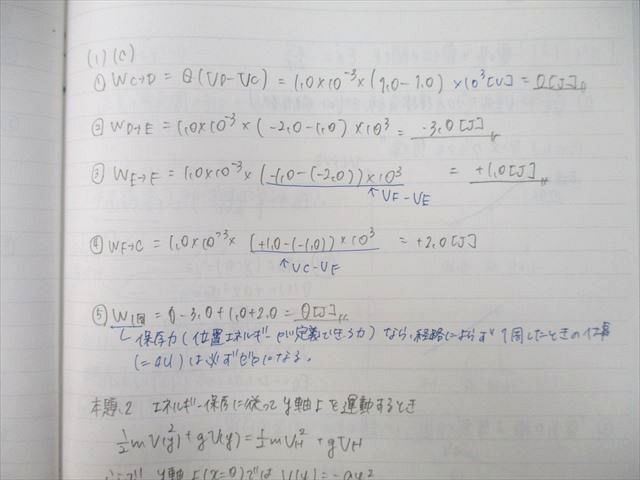 (1) (c)
① WC→D = Q(VD-VC) = 1.0×10⁻³×(1.0-1.0) ×10³[V] = 0[J]
② WD→E = 1.0×10⁻³×(-2.0-1.0)×10³ = -3.0[J]
③ WE→F = 1.0×10⁻³×(-1.0-(-2.0))×10³ = +1.0[J]
↑VF-VE
④ WF→C = 1.0×10⁻³×(+1.0-(-1.0))×10³ = +2.0[J]
↑VC-VF
⑤ W1周 = 0-3.0+1.0+2.0 = 0[J]
保存力(位置エネルギーが定義できる力)なら、経路によらず1周したときの仕事
(=ΔU)は必ずゼロになる。
本題.2 エネルギー保存に従って y軸上を運動するとき
½mV(y)²+qV(y)=½mVH²+qVH
y軸上(x=0)では V(y)=-ay²